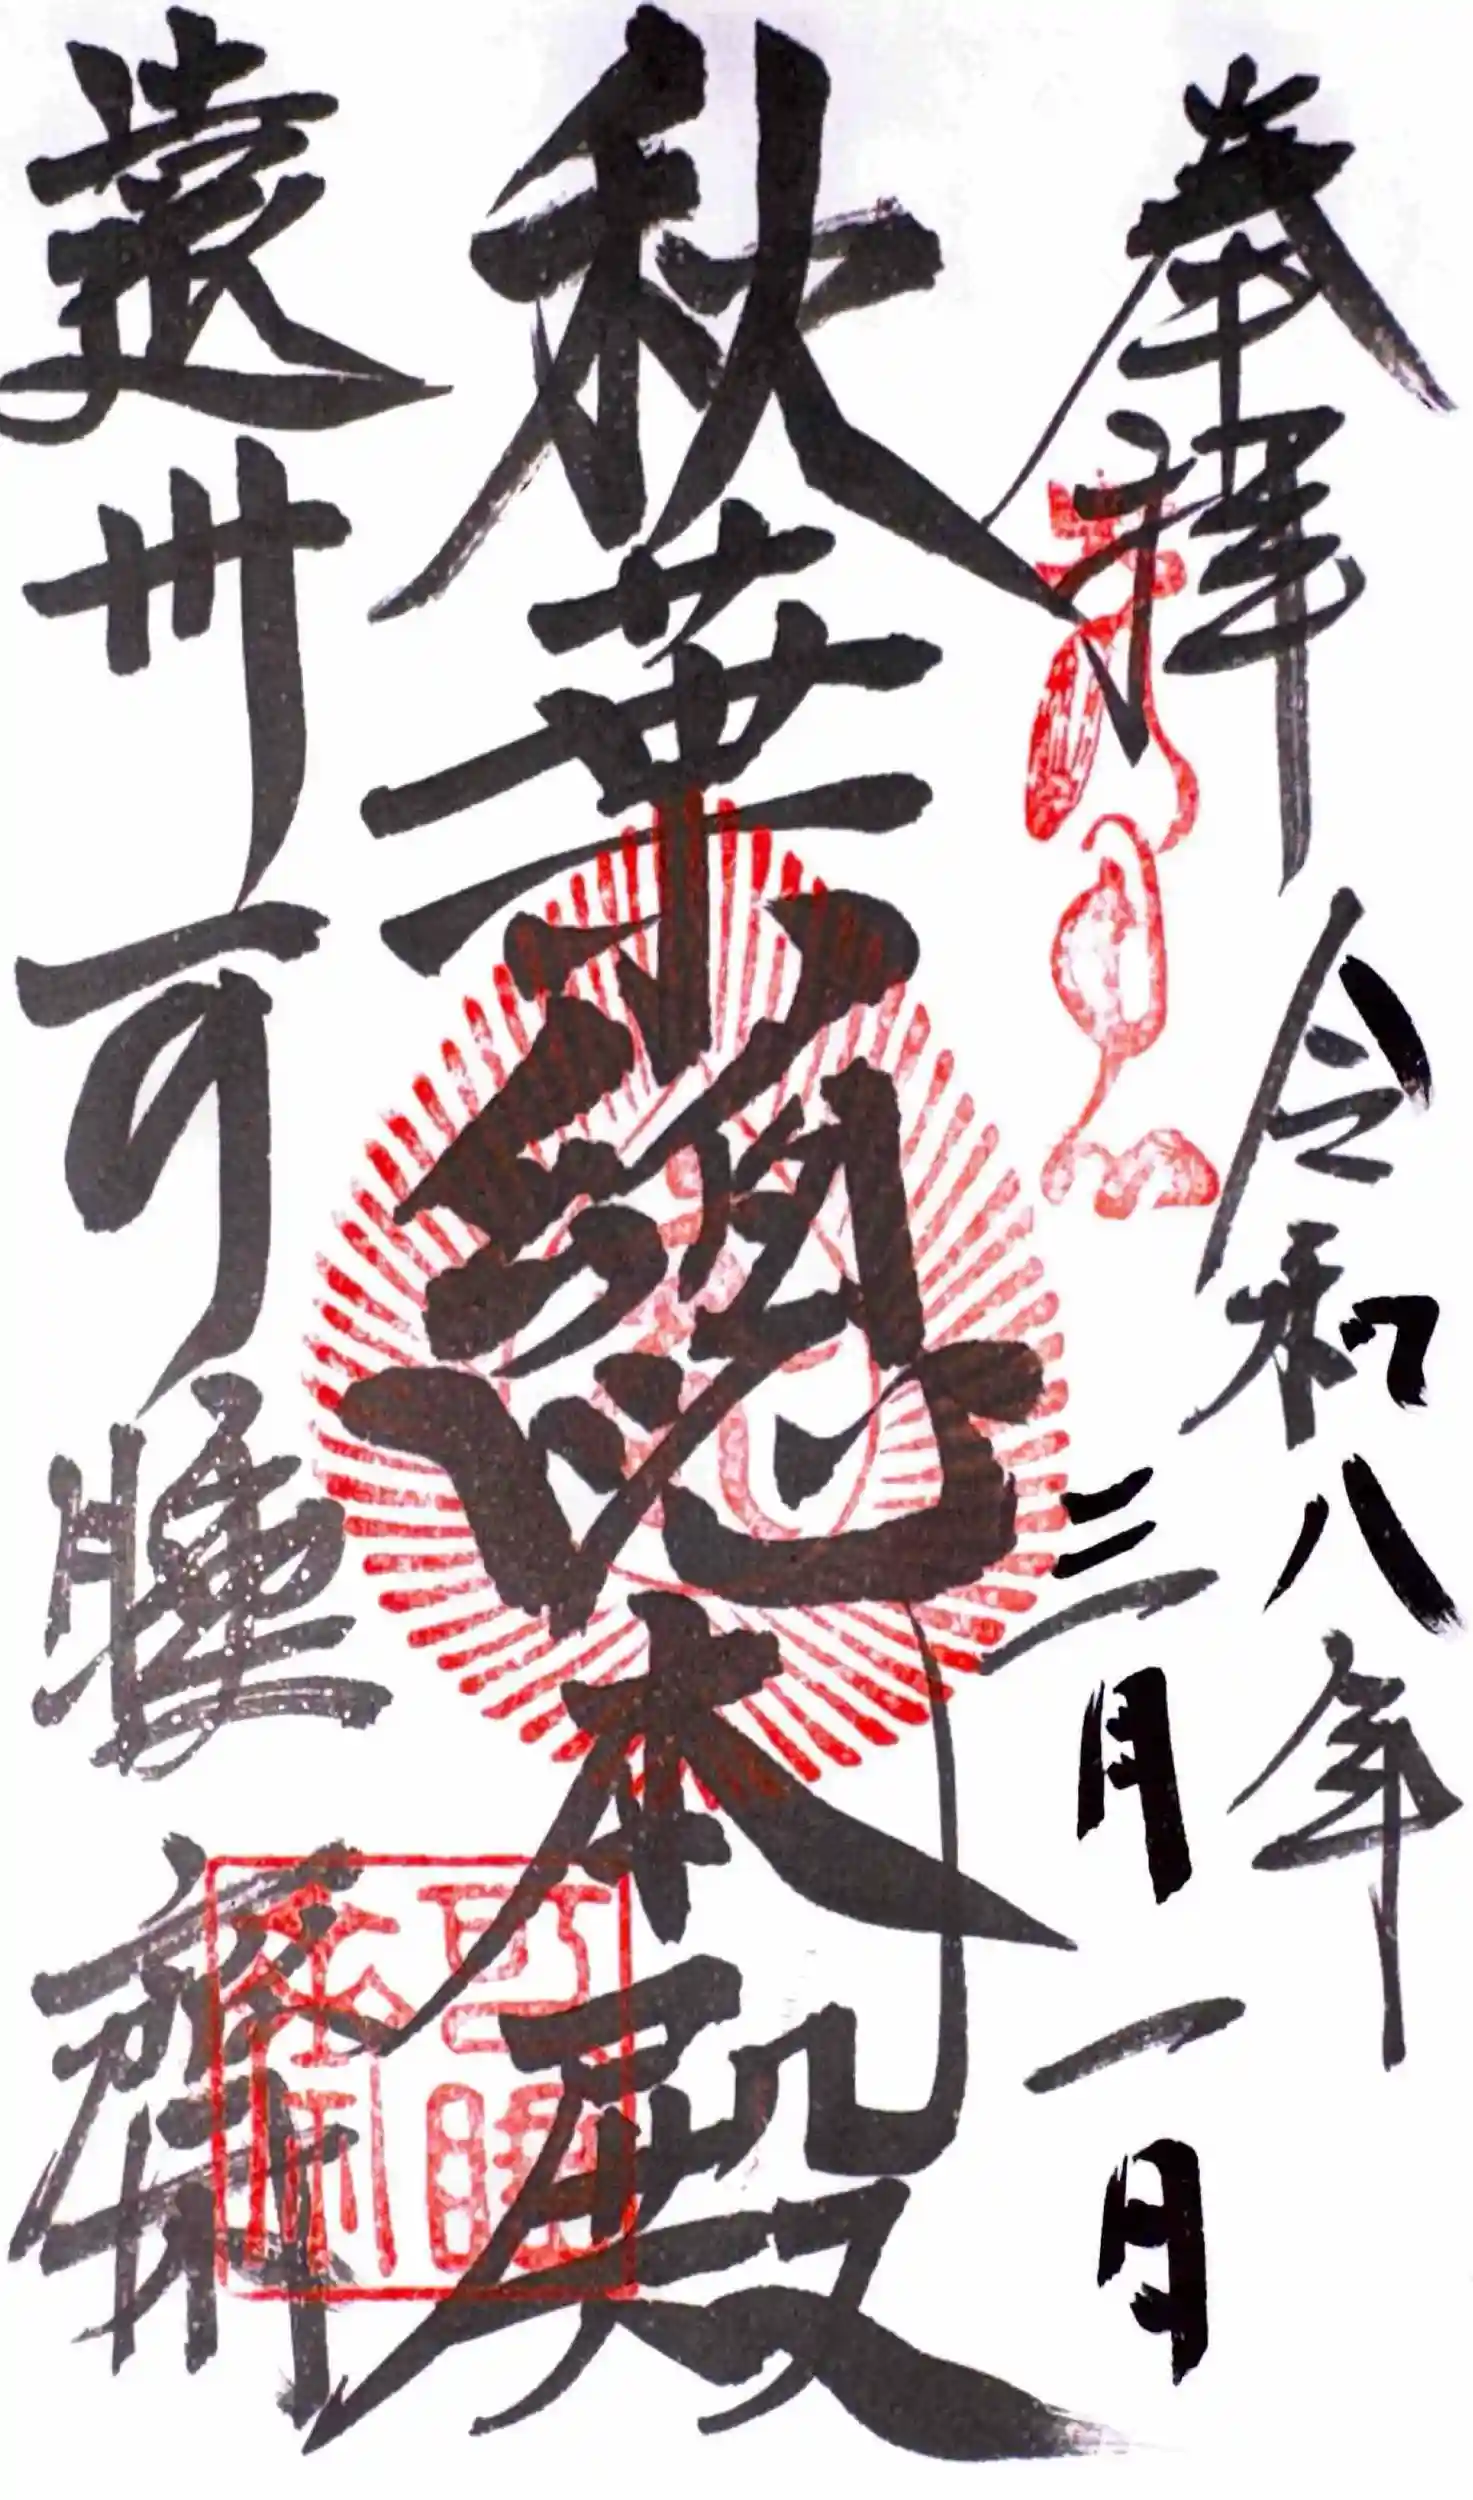 奉拝
令和八年
三月一日
秋葉總本殿
遠州可睡齋
可睡